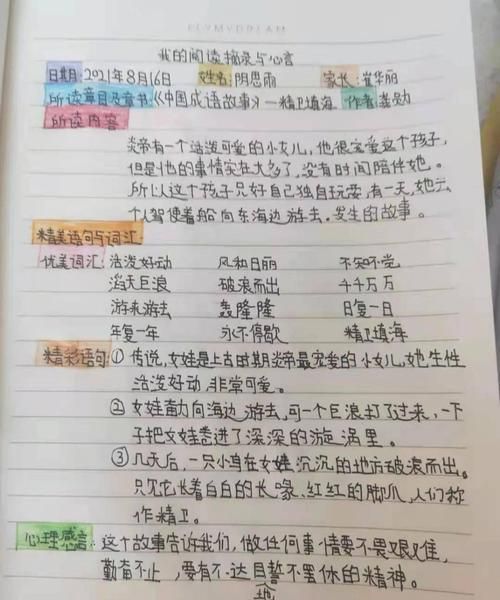 ELYMYDREAM
我的阅读摘录与心言
日期:2021年8月16日 姓名:阴思雨 家长:龚华丽
所读章目及章书:《中国成语故事》—精卫填海 作者:龚勋
所读内容
炎帝有一个活泼可爱的小女儿,他很宠爱这个孩子,
但是他的事情实在太多了,没有时间陪伴她。
所以这个孩子只好自己独自玩耍,有一天,她云
个人驾使着船向东海边游去。发生的故事。
精美语句与词汇:
优美词汇:活泼好动 风和日丽 不知不觉
滔天巨浪 破浪而出 千千万万
游来游去 轰隆隆 日复一日
年复一年 永不停歇 精卫填海
精彩语句①传说,女娃是上古时期炎帝最宠爱的小女儿,她生性
活泼好动,非常可爱。
②女娃奋力向海边游去,可一个巨浪打了过来,一下
子把女娃卷进了深深的漩涡里。
③几天后,一只小鸟在女娃沉沉的地方破浪而出。
只见它长着白白的长喙、红红的脚爪,人们称
作精卫。
心理感言:这个故事告诉我们,做任何事情要不畏艰难,
勤奋不止,要有不达目誓不罢休的精神。
地